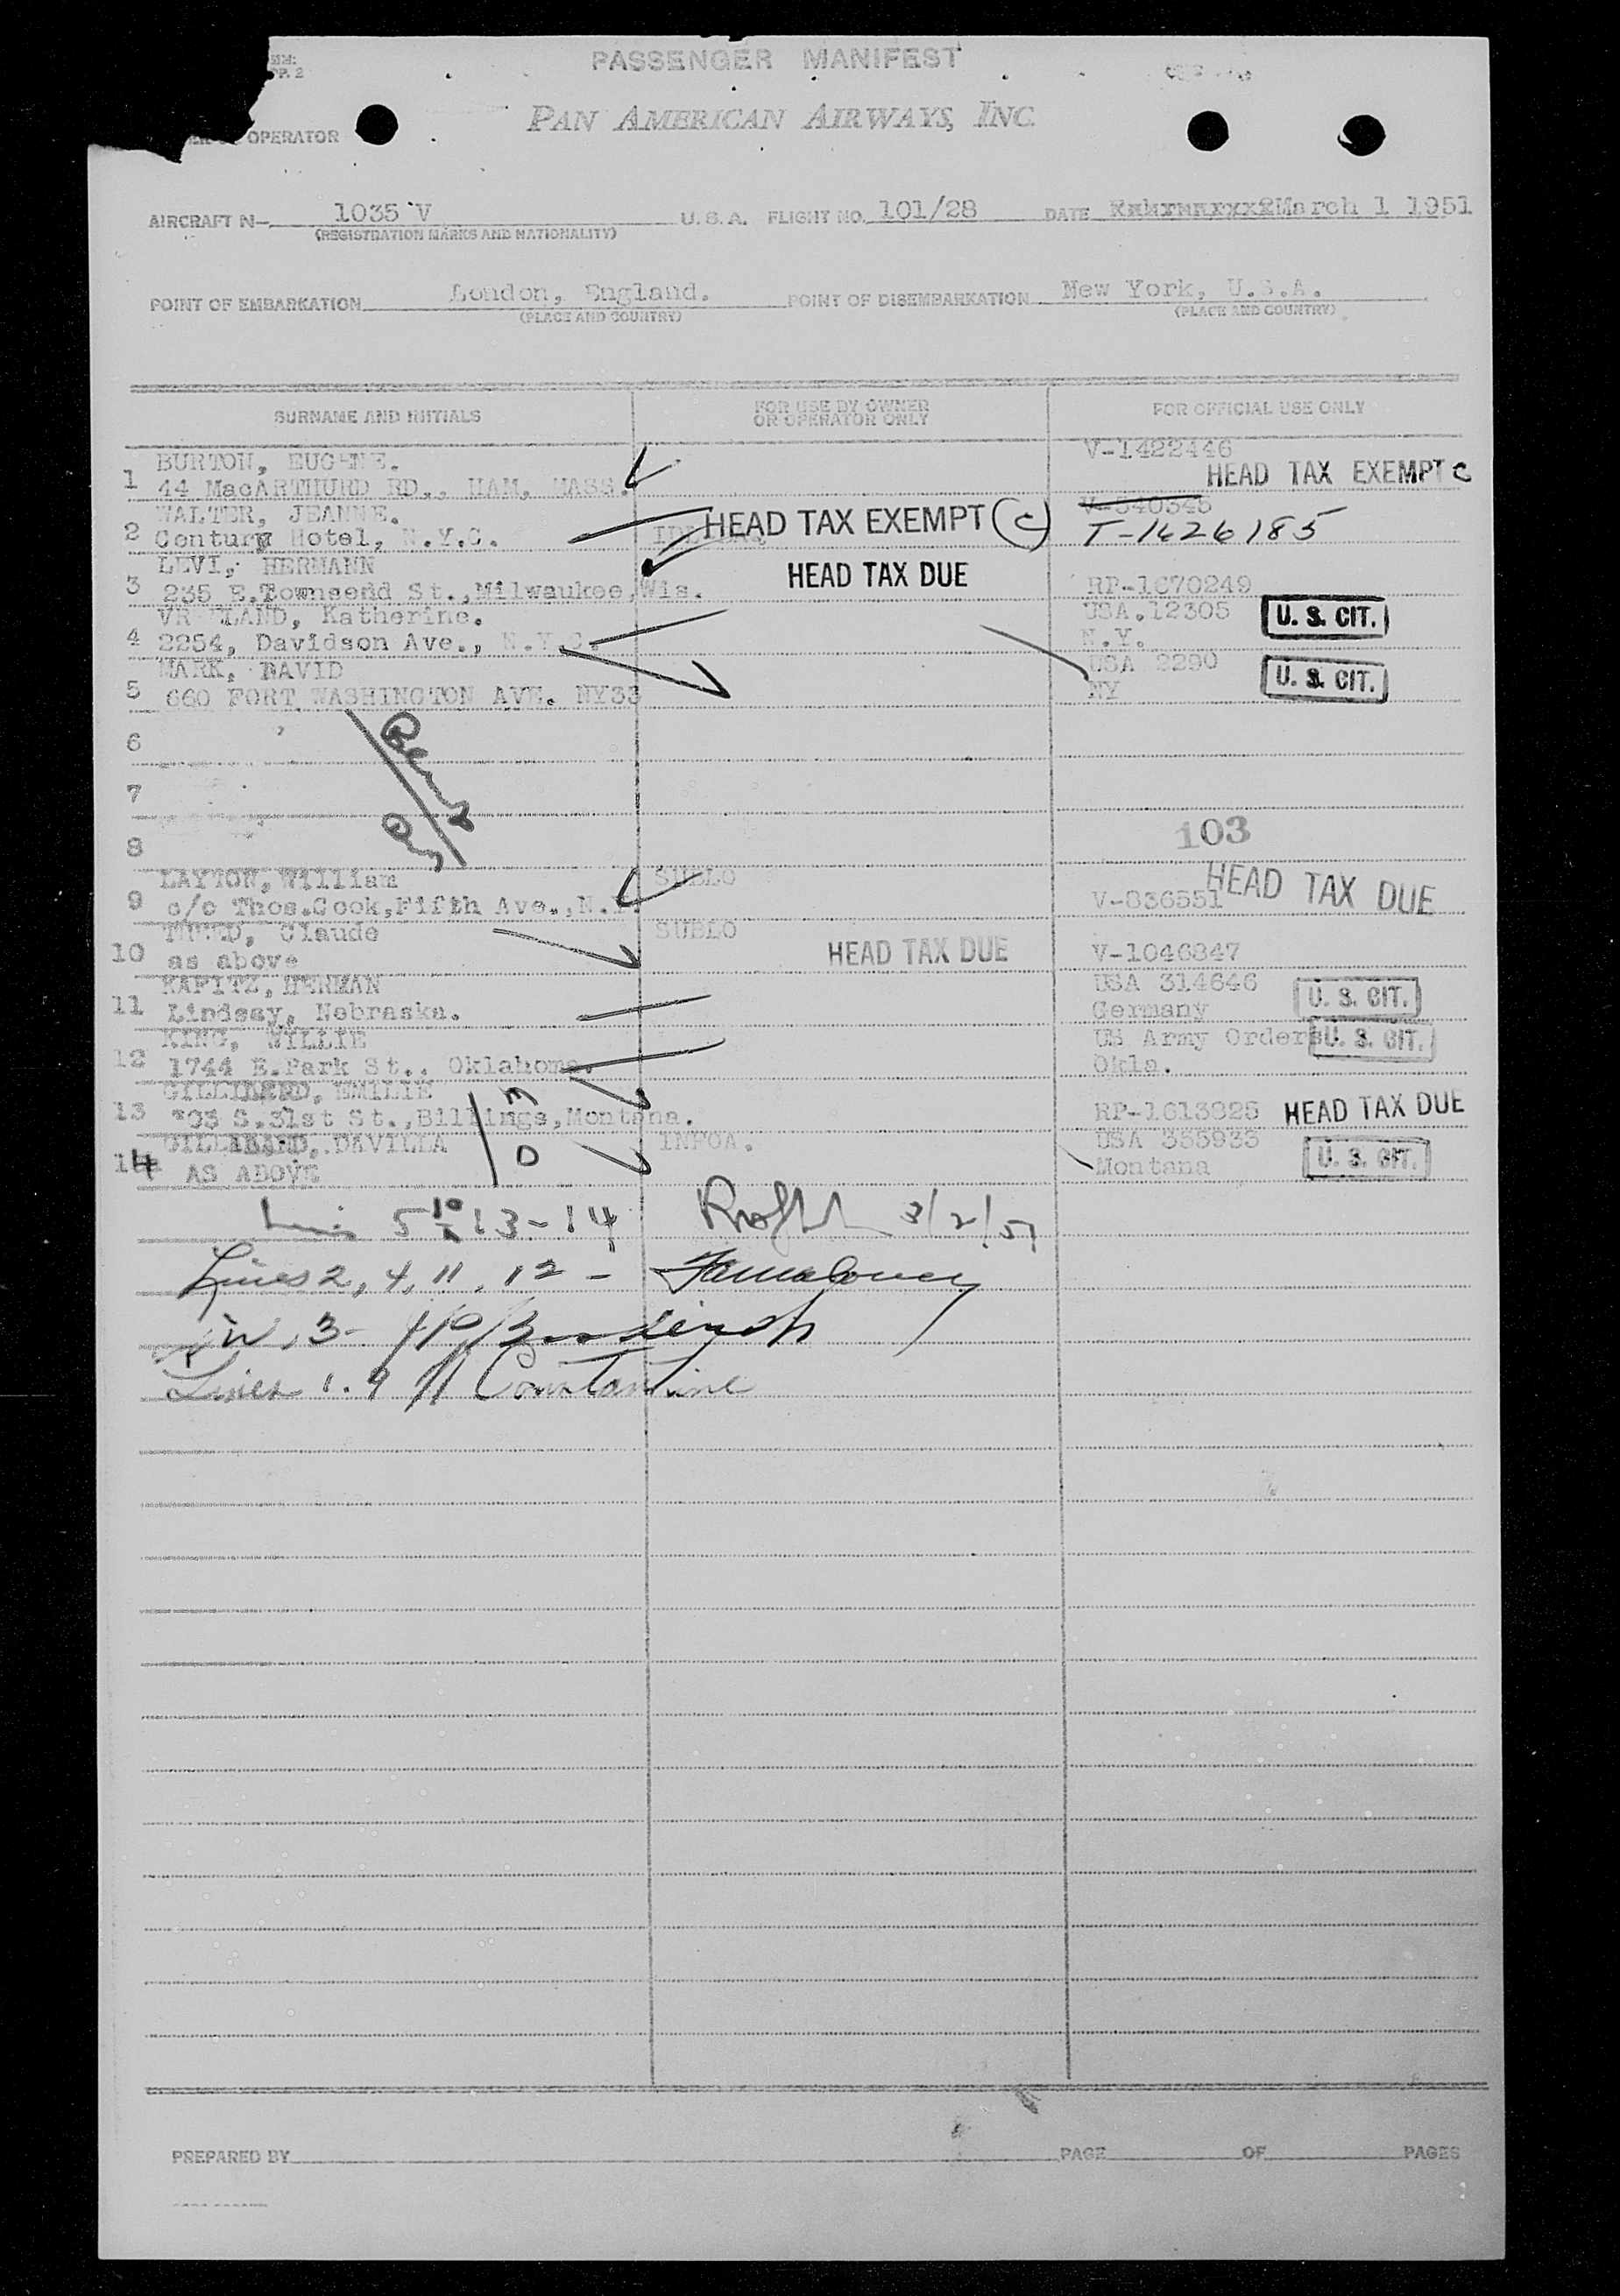 PASSENGER MANIFEST
PAN AMERICAN AIRWAYS, INC.
OPERATOR
AIRCRAFT N- 1035 V U.S.A. FLIGHT NO. 101/28 DATE March 1 1951
(REGISTRATION MARKS AND NATIONALITY)
POINT OF EMBARKATION London, England. POINT OF DISEMBARKATION New York, U.S.A.
(PLACE AND COUNTRY) (PLACE AND COUNTRY)
SURNAME AND INITIALS FOR USE BY OWNER OR OPERATOR ONLY FOR OFFICIAL USE ONLY
BURTON, EUGENE. V-1422446
1 44 MacARTHURD RD., HAM, MASS. HEAD TAX EXEMPT C
WALTER, JEANNE. V-540345
2 Century Hotel, N.Y.C. HEAD TAX EXEMPT (C) T-1626185
LEVI, HERMANN HEAD TAX DUE
3 235 E.Townsend St.,Milwaukee,Wis. RP-1670249
LAND, Katherine. USA.12305 U. S. CIT.
4 2254, Davidson Ave., N.Y.C. N.Y.
MARK, DAVID USA 2290 U. S. CIT.
5 660 FORT WASHINGTON AVE. NY33 NY
6
7
103
8
LAYTON, William SUBLO HEAD TAX DUE
9 c/o Thos.Cook,Fifth Ave.,N.Y. V-836551
Claude SUBLO
10 as above HEAD TAX DUE V-1046847
KAPITZ, HERMAN USA 314646 U. S. CIT.
11 Lindsay, Nebraska. Germany
KING, WILLIE US Army Orders U. S. CIT.
12 1744 E.Park St., Oklahoma. Okla.
EMILIE
13 303 S.31st St.,Billings,Montana. RP-1613825 HEAD TAX DUE
DAVILLA INFOA. USA 355933
14 AS ABOVE Montana U. S. CIT.
5 10 13-14 3/2/51
Lines 2, 4, 11, 12 -
3-
Lines 1. 9 Constantine
PREPARED BY PAGE OF PAGES